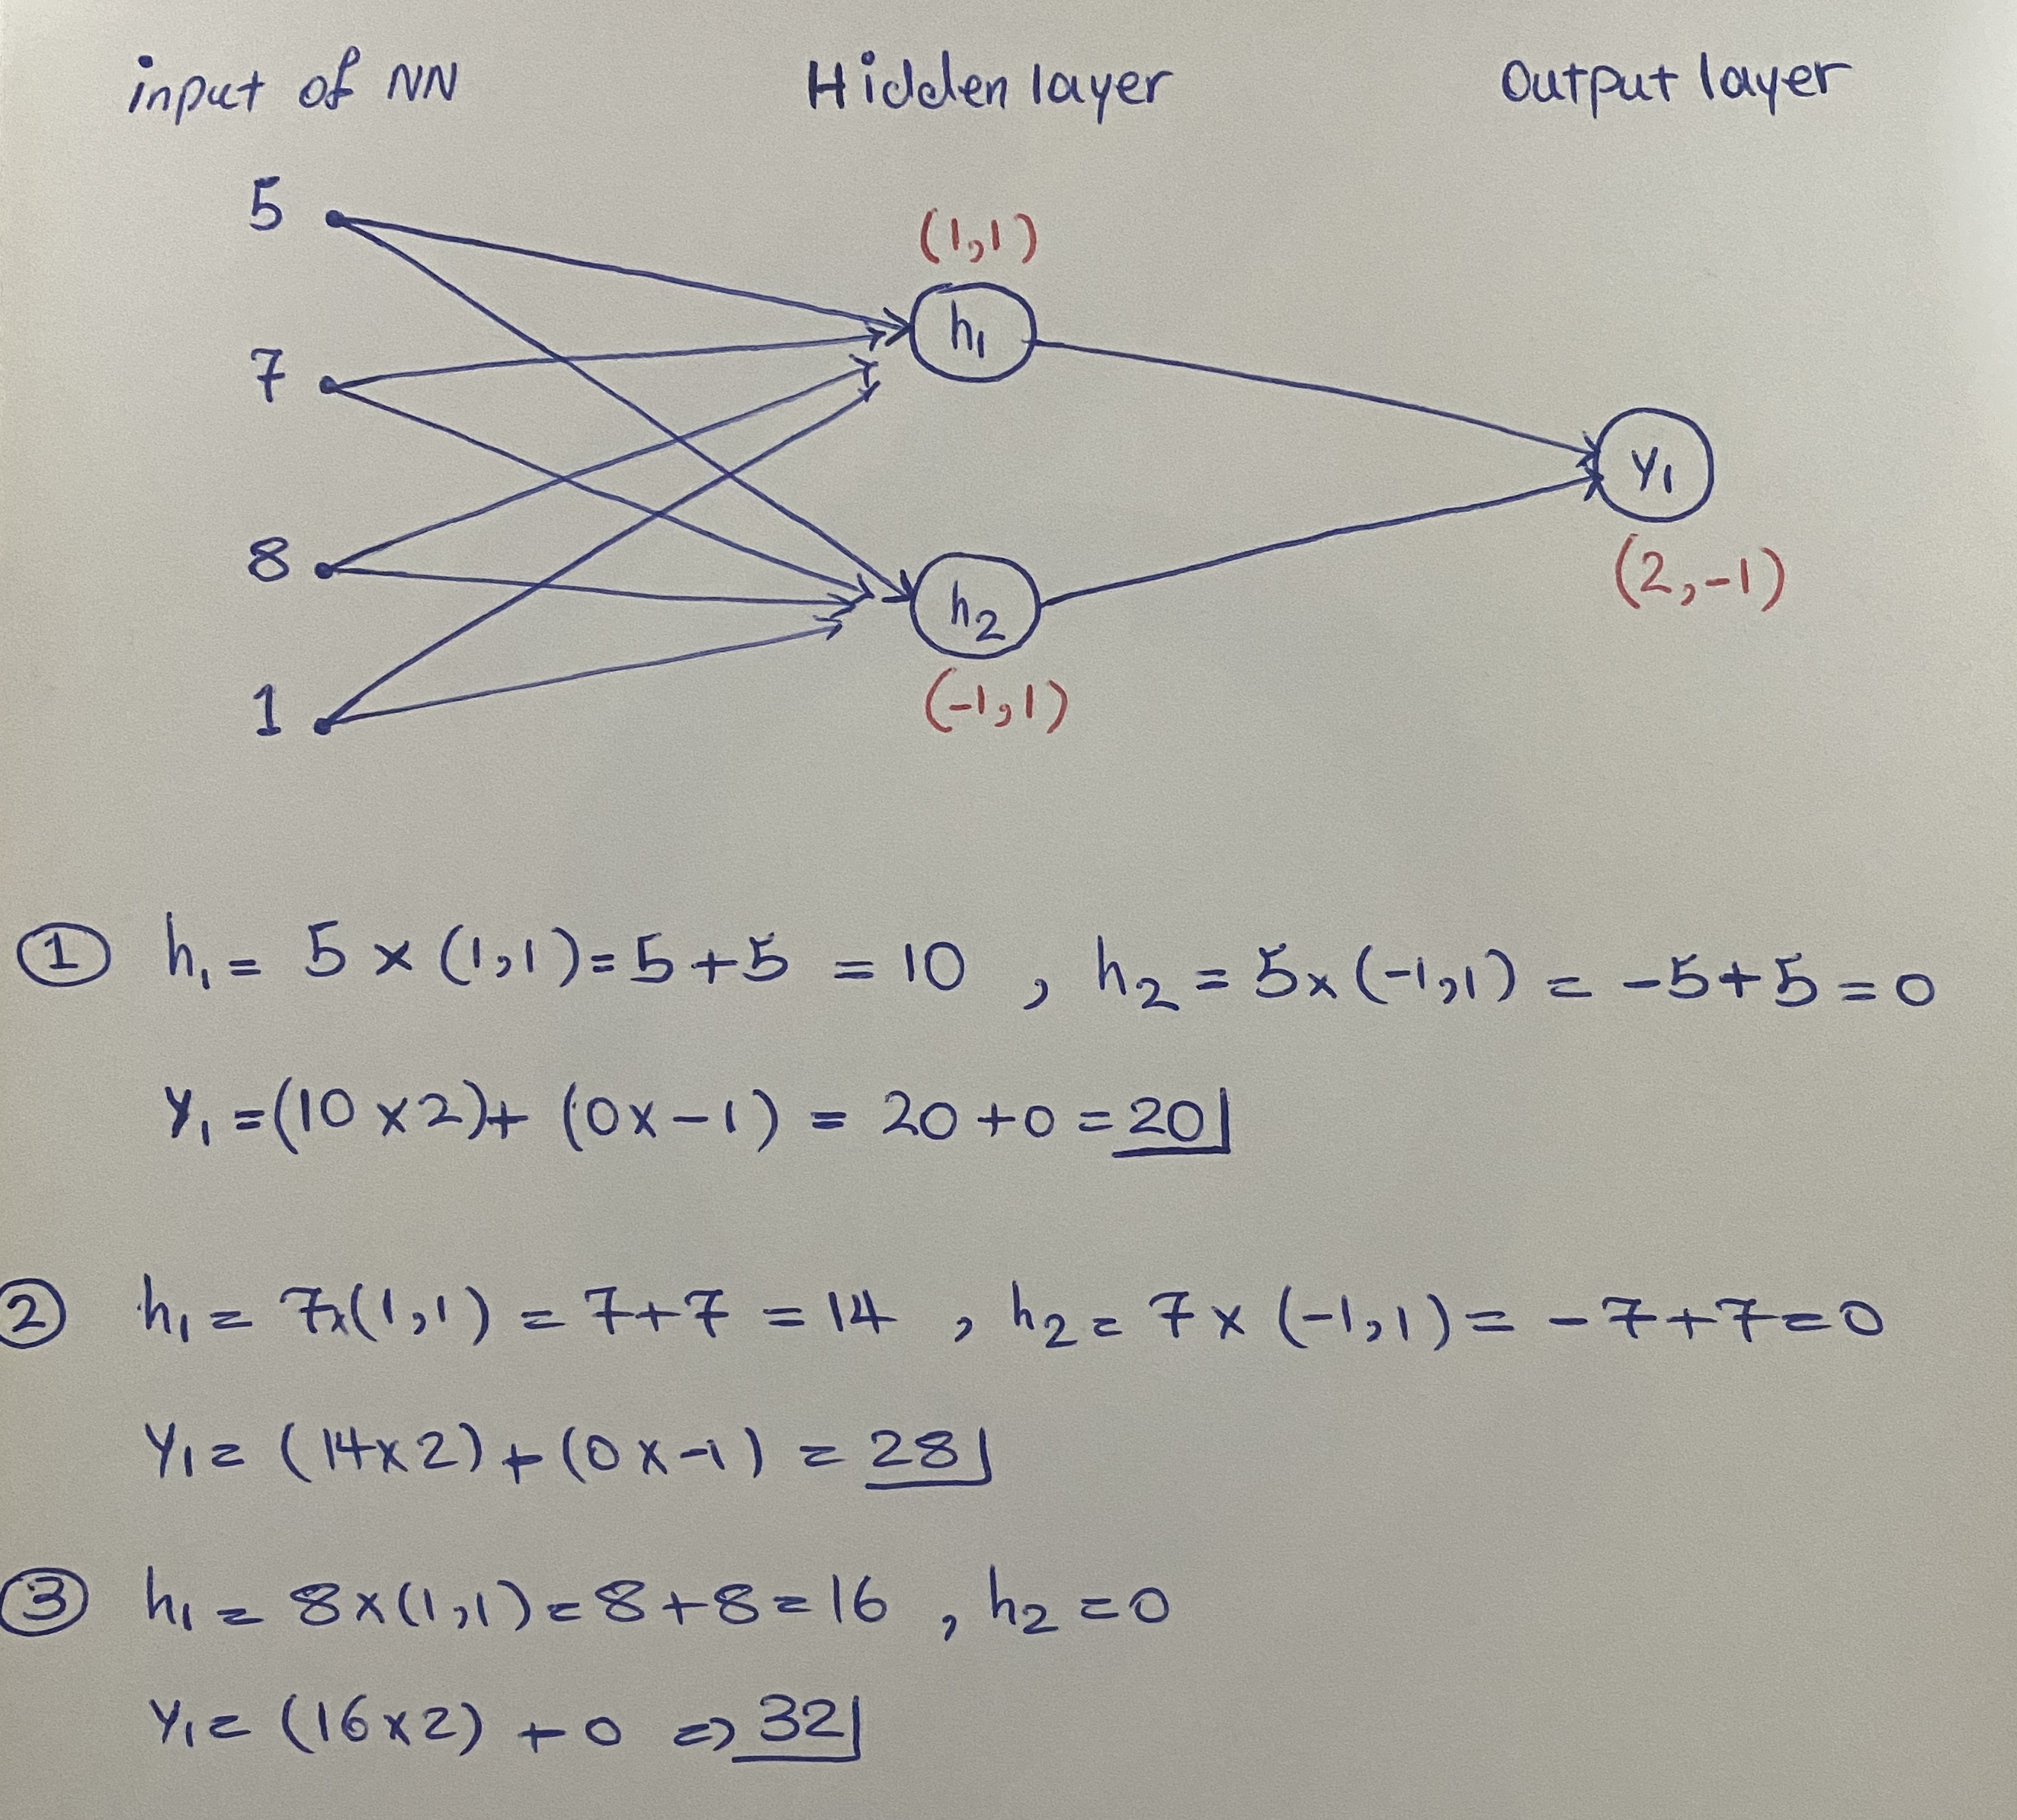 input of NN Hidden layer Output layer
5
(1,1)
h₁
7
y₁
8
(2,-1)
h₂
1
(-1,1)
① h₁ = 5 × (1,1) = 5 + 5 = 10 , h₂ = 5 × (-1,1) = -5 + 5 = 0
y₁ = (10 × 2) + (0 × -1) = 20 + 0 = 20
② h₁ = 7 × (1,1) = 7 + 7 = 14 , h₂ = 7 × (-1,1) = -7 + 7 = 0
y₁ = (14 × 2) + (0 × -1) = 28
③ h₁ = 8 × (1,1) = 8 + 8 = 16 , h₂ = 0
y₁ = (16 × 2) + 0 => 32